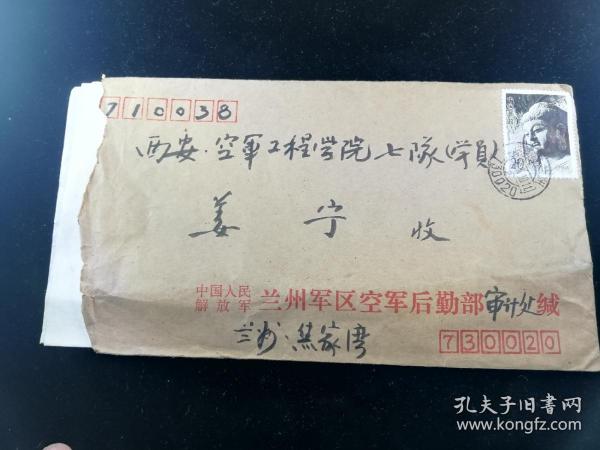 710038
西安·空军工程学院七队(学员)
姜宁收
中国人民
解放军 兰州军区空军后勤部审计处缄
兰州·焦家湾
730020
730020
孔夫子旧书网
www.kongfz.com